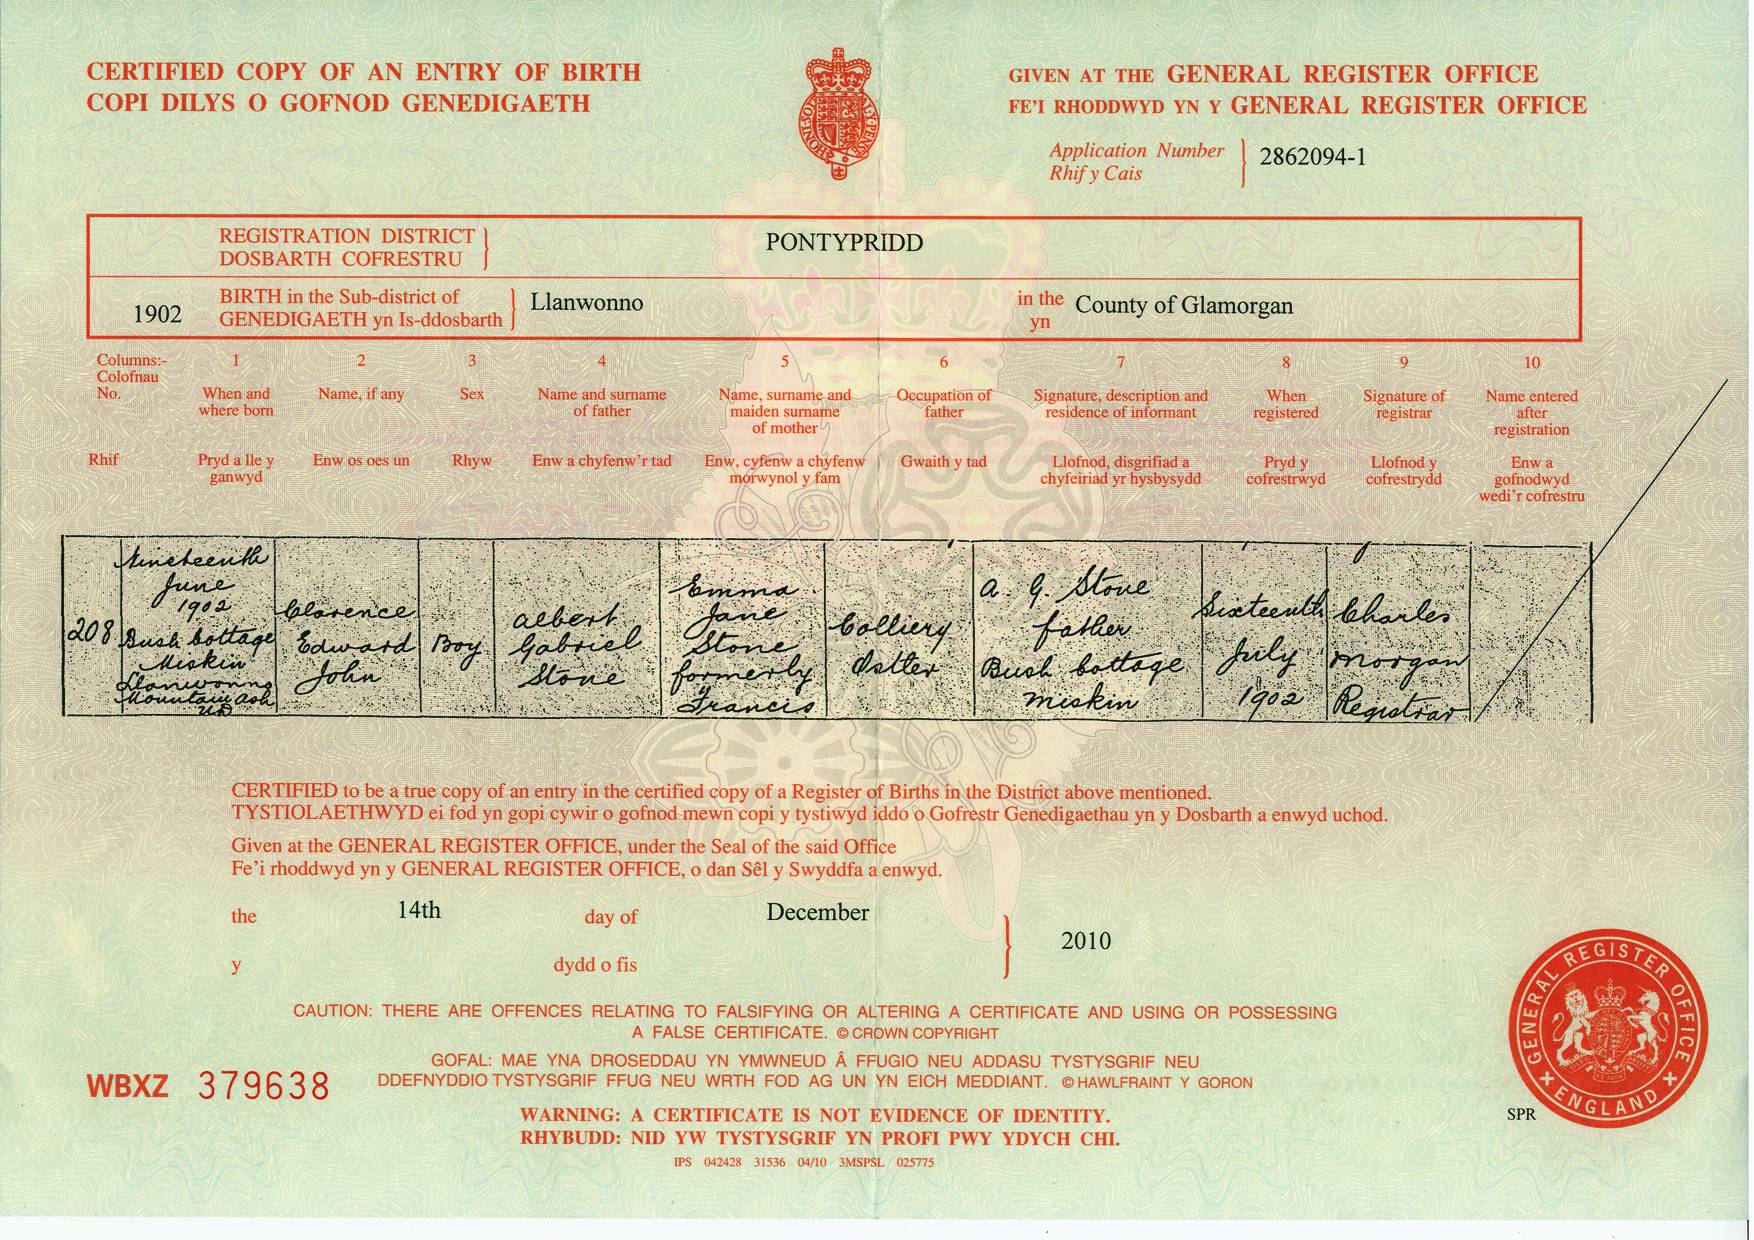 CERTIFIED COPY OF AN ENTRY OF BIRTH
COPI DILYS O GOFNOD GENEDIGAETH
GIVEN AT THE GENERAL REGISTER OFFICE
FE'I RHODDWYD YN Y GENERAL REGISTER OFFICE
Application Number
Rhif y Cais
2862094-1
REGISTRATION DISTRICT
DOSBARTH COFRESTRU
PONTYPRIDD
1902
BIRTH in the Sub-district of
GENEDIGAETH yn Is-ddosbarth
Llanwonno
in the
yn
County of Glamorgan
Columns:-
Colofnau
No.
Rhif
1
When and
where born
Pryd a lle y
ganwyd
2
Name, if any
Enw os oes un
3
Sex
Rhyw
4
Name and surname
of father
Enw a chyfenw'r tad
5
Name, surname and
maiden surname
of mother
Enw, cyfenw a chyfenw
morwynol y fam
6
Occupation of
father
Gwaith y tad
7
Signature, description and
residence of informant
Llofnod, disgrifiad a
chyfeiriad yr hysbysydd
8
When
registered
Pryd y
cofrestrwyd
9
Signature of
registrar
Llofnod y
cofrestrydd
10
Name entered
after
registration
Enw a
gofnodwyd
wedi'r cofrestru
208
Nineteenth
June
1902
Bush Cottage
Miskin
Llanwonno
Mountain Ash
UD
Clarence
Edward
John
Boy
Albert
Gabriel
Stone
Emma
Jane
Stone
formerly
Francis
Colliery
Ostler
A. G. Stone
father
Bush Cottage
Miskin
Sixteenth
July
1902
Charles
Morgan
Registrar
CERTIFIED to be a true copy of an entry in the certified copy of a Register of Births in the District above mentioned.
TYSTIOLAETHWYD ei fod yn gopi cywir o gofnod mewn copi y tystiwyd iddo o Gofrestr Genedigaethau yn y Dosbarth a enwyd uchod.
Given at the GENERAL REGISTER OFFICE, under the Seal of the said Office
Fe'i rhoddwyd yn y GENERAL REGISTER OFFICE, o dan Sêl y Swyddfa a enwyd.
the 14th day of December
2010
y dydd o fis
CAUTION: THERE ARE OFFENCES RELATING TO FALSIFYING OR ALTERING A CERTIFICATE AND USING OR POSSESSING
A FALSE CERTIFICATE. © CROWN COPYRIGHT
GOFAL: MAE YNA DROSEDDAU YN YMWNEUD Â FFUGIO NEU ADDASU TYSTYSGRIF NEU
DDEFNYDDIO TYSTYSGRIF FFUG NEU WRTH FOD AG UN YN EICH MEDDIANT. © HAWLFRAINT Y GORON
WBXZ 379638
WARNING: A CERTIFICATE IS NOT EVIDENCE OF IDENTITY.
RHYBUDD: NID YW TYSTYSGRIF YN PROFI PWY YDYCH CHI.
IPS 042428 31536 04/10 3MSPSL 025775
SPR
GENERAL REGISTER OFFICE
ENGLAND